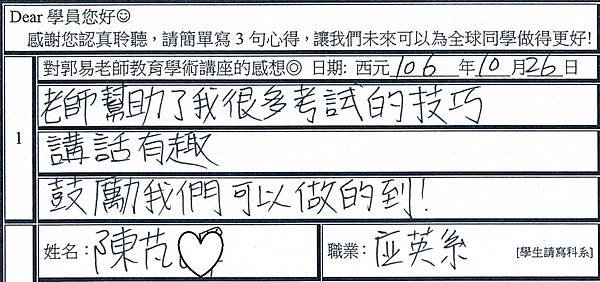 Dear 學員您好☺
感謝您認真聆聽，請簡單寫 3 句心得，讓我們未來可以為全球同學做得更好!
對郭易老師教育學術講座的感想◎ 日期: 西元 106 年 10 月 26 日
1
老師幫助了我很多考試的技巧
講話有趣
鼓勵我們可以做的到!
姓名: 陳芃 職業: 应英系 [學生請寫科系]